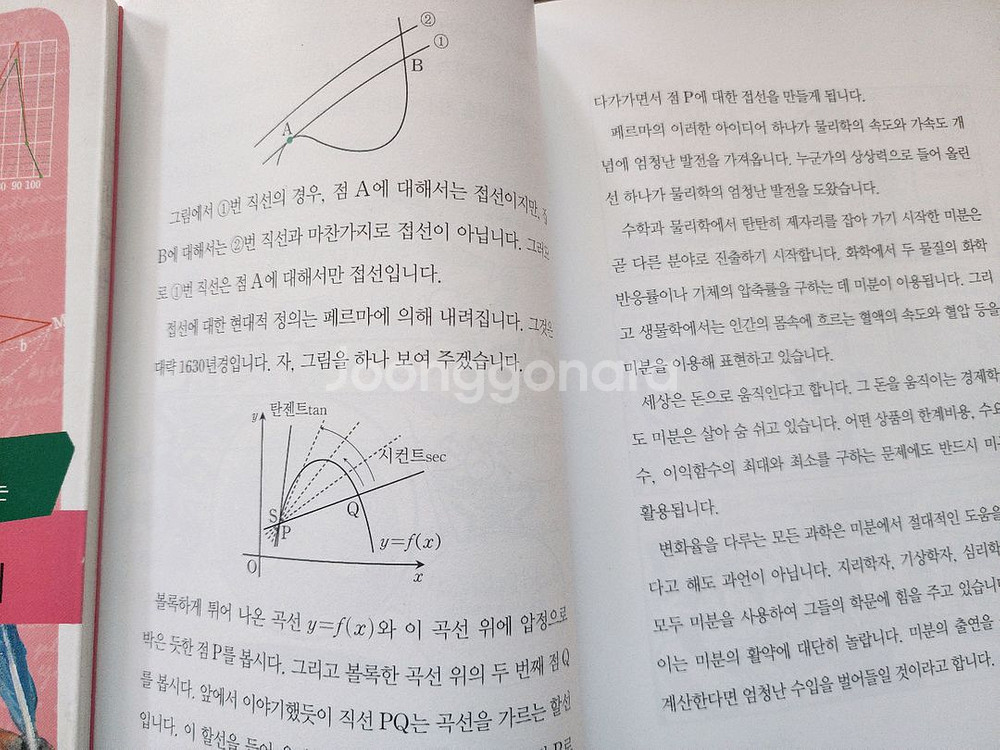 0 90 100
M
b
는
②
①
B
A
그림에서 ①번 직선의 경우, 점 A에 대해서는 접선이지만, 점
B에 대해서는 ②번 직선과 마찬가지로 접선이 아닙니다. 그러므
로 ①번 직선은 점 A에 대해서만 접선입니다.
접선에 대한 현대적 정의는 페르마에 의해 내려집니다. 그것은
대략 1630년경입니다. 자, 그림을 하나 보여 주겠습니다.
Joonggonara
y
탄젠트tan
시컨트sec
S
P
Q
y=f(x)
O
x
볼록하게 튀어 나온 곡선 y=f(x)와 이 곡선 위에 압정으로
박은 듯한 점 P를 봅시다. 그리고 볼록한 곡선 위의 두 번째 점 Q
를 봅시다. 앞에서 이야기했듯이 직선 PQ는 곡선을 가르는 할선
입니다. 이 할선을 들어
다가가면서 점 P에 대한 접선을 만들게 됩니다.
페르마의 이러한 아이디어 하나가 물리학의 속도와 가속도 개
념에 엄청난 발전을 가져옵니다. 누군가의 상상력으로 들어 올린
선 하나가 물리학의 엄청난 발전을 도왔습니다.
수학과 물리학에서 탄탄히 제자리를 잡아 가기 시작한 미분은
곧 다른 분야로 진출하기 시작합니다. 화학에서 두 물질의 화학
반응률이나 기체의 압축률을 구하는 데 미분이 이용됩니다. 그리
고 생물학에서는 인간의 몸속에 흐르는 혈액의 속도와 혈압 등을
미분을 이용해 표현하고 있습니다.
세상은 돈으로 움직인다고 합니다. 그 돈을 움직이는 경제학
도 미분은 살아 숨 쉬고 있습니다. 어떤 상품의 한계비용, 수요
수, 이익함수의 최대와 최소를 구하는 문제에도 반드시 미
활용됩니다.
변화율을 다루는 모든 과학은 미분에서 절대적인 도움을
다고 해도 과언이 아닙니다. 지리학자, 기상학자, 심리학
모두 미분을 사용하여 그들의 학문에 힘을 주고 있습니
이는 미분의 활약에 대단히 놀랍니다. 미분의 출연을
계산한다면 엄청난 수입을 벌어들일 것이라고 합니다.